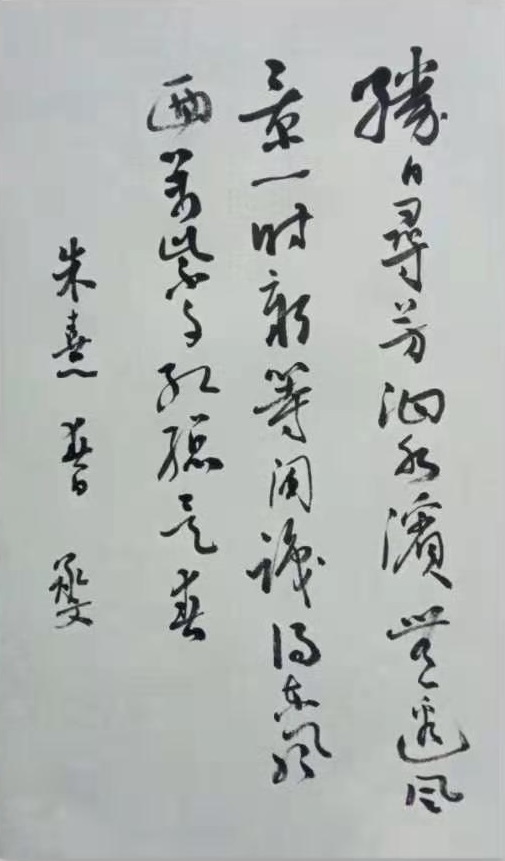 勝日尋芳泗水濱無邊風
景一時新等閒識得東風
面萬紫千紅總是春
朱熹 春日